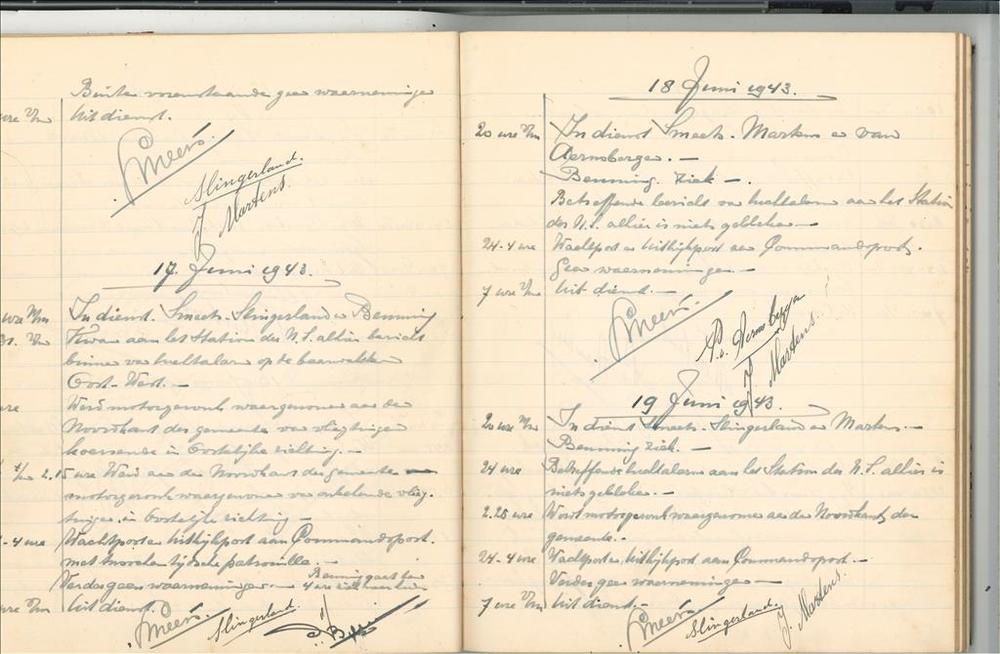 Buiten vorenstaande geen waarnemingen
uit dienst.
Smeets.
Slingerland.
J. Martens.
17. Juni 1943.
In dienst. Smeets. Slingerland en Benning
Kwam aan het Station der N.S. alhier bericht
binnen van luchtalarm op de baanvakken
Oost-West. —
Werd motorgeronk waargenomen aan den
Noordkant der gemeente van vliegtuigen
koersende in Oostelijke richting. —
2.15 ure Werd aan den Noordkant der gemeente
motorgeronk waargenomen van enkelende vlieg-
tuigen in Oostelijke richting —
-4 ure Wachtposten Uitkijkpost aan Commandopost.
met tusschen tijdsche patrouille. —
Verder geen waarnemingen — Benning gaat ten
4 ure
uit dienst.
Smeets. Slingerland.
18 Juni 1943.
20 ure Vm In dienst Smeets. Martens en van
Aernsbergen. —
Benning. Ziek —.
Betreffende bericht van luchtalarm aan het Station
der N.S. alhier is niets gebleken —
24-4 ure Wachtpost en Uitkijkpost aan Commandopost.
Geen waarnemingen —
7 ure Vm uit dienst. —
Smeets. P. v. Aernsbergen
J. Martens.
19 Juni 1943.
20 ure Nm In dienst Smeets. Slingerland en Martens. —
Benning ziek. —
24 ure Betreffende luchtalarm aan het Station der N.S. alhier is
niets gebleken. —
2.25 ure Werd motorgeronk waargenomen aan den Noordkant der
gemeente. —
24-4 ure Wachtposten Uitkijkpost aan Commandopost. —
Verder geen waarnemingen —
7 ure Vm uit dienst —
Smeets. Slingerland. J. Martens.